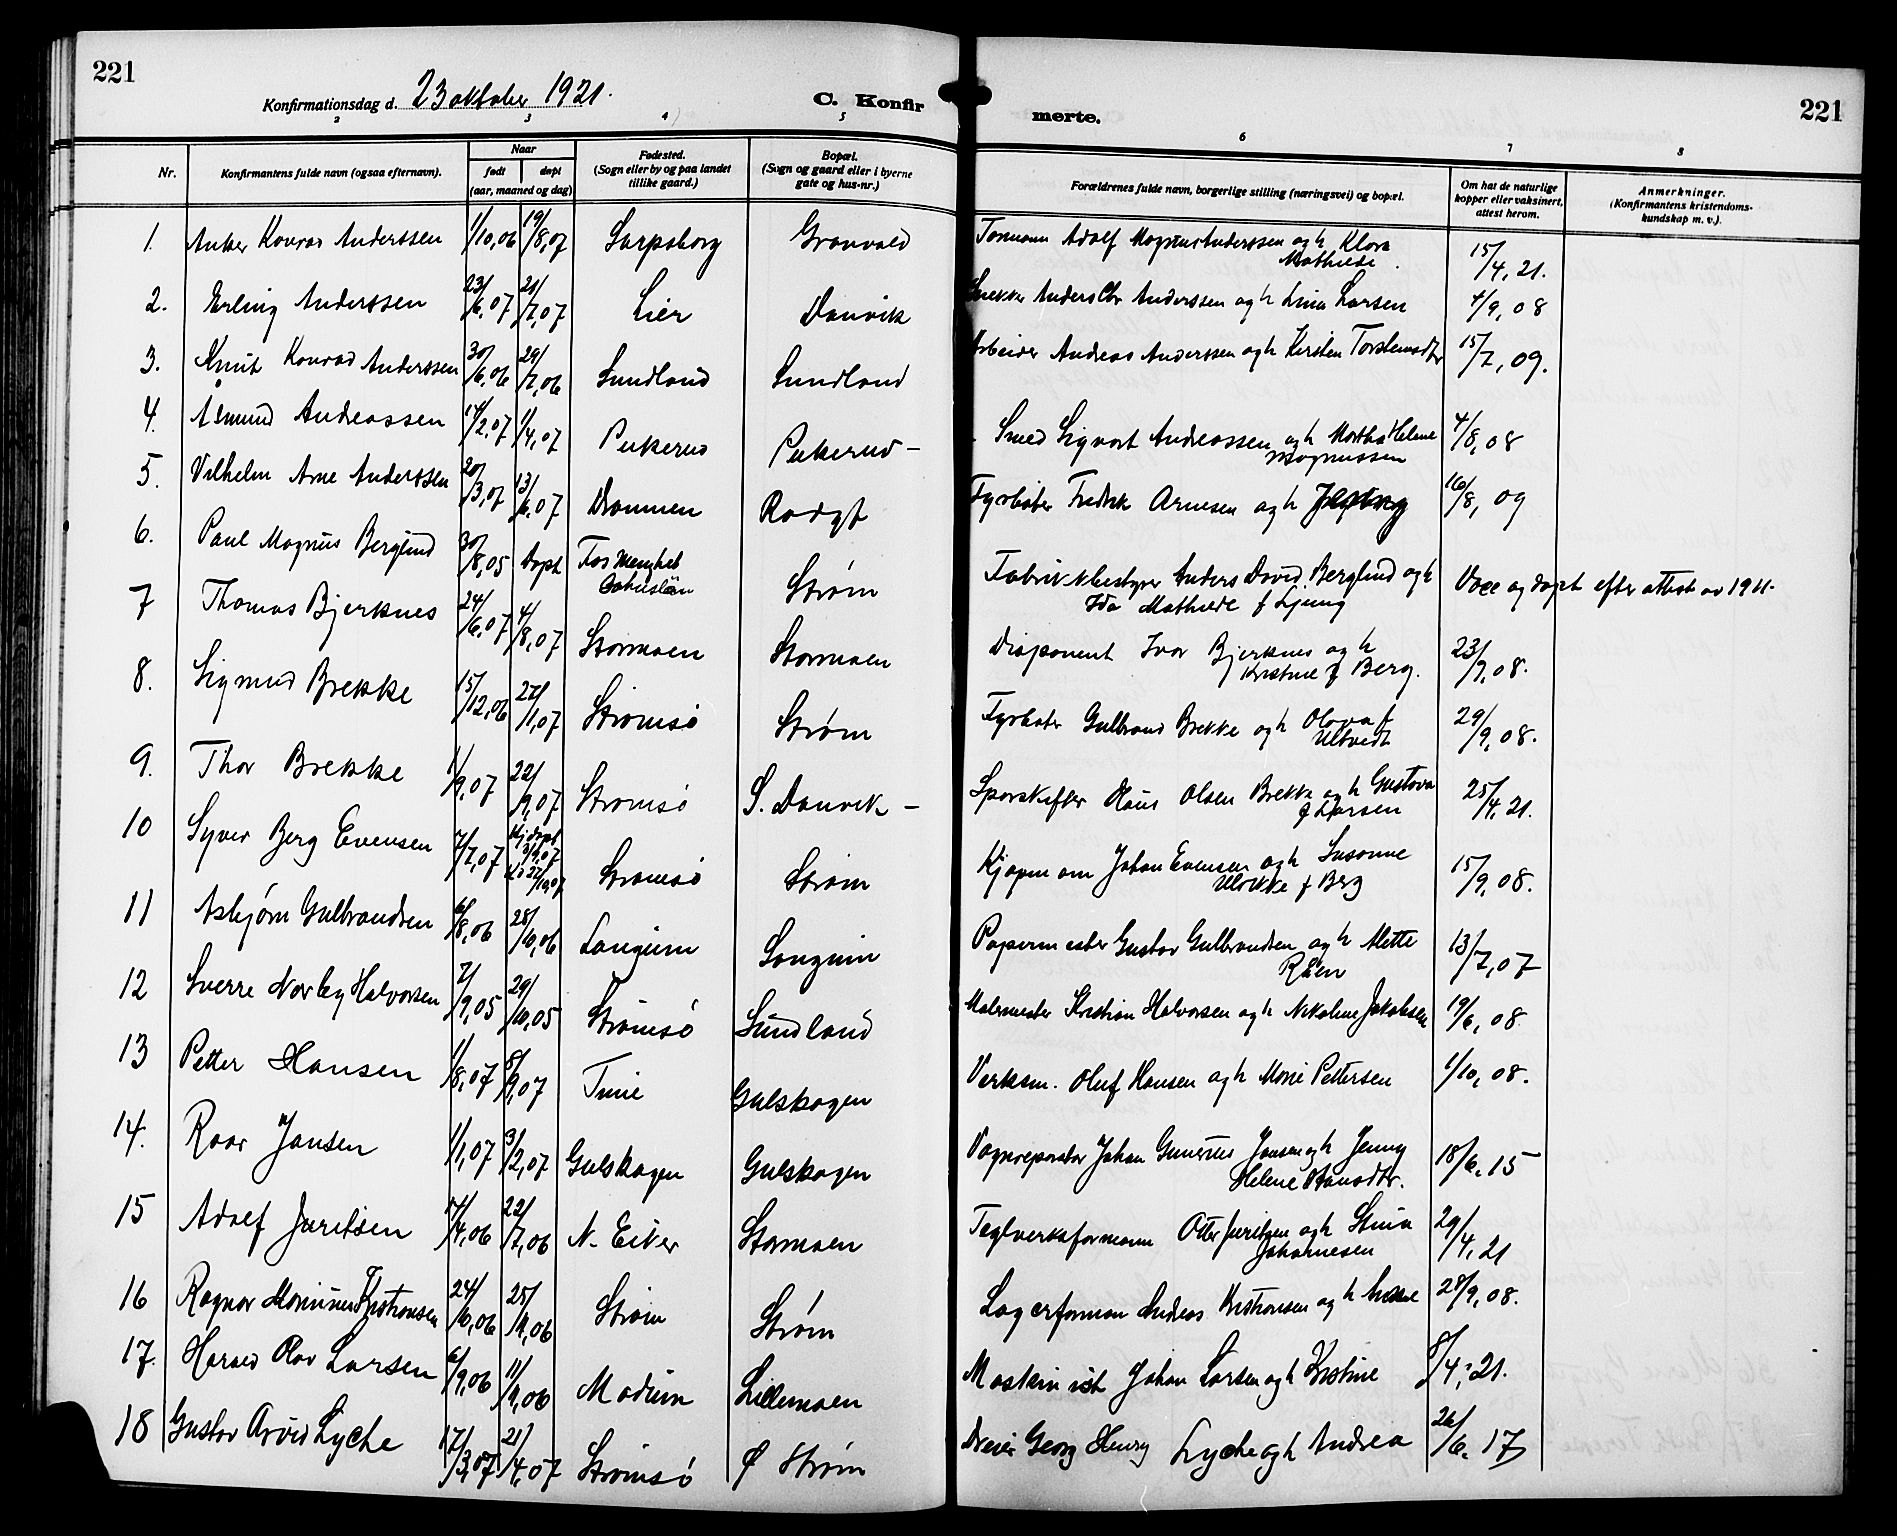 221
Konfirmationsdag d. 23 oktober 1921.
C. Konfir
merte.
221
2 3 4 5 6 7 8
Nr. Konfirmantens fulde navn (ogsaa efternavn). Naar født døpt (aar, maaned og dag) Fødested. (Sogn eller by og paa landet tillike gaard.) Bopæl. (Sogn og gaard eller i byerne gate og hus-nr.) Forældrenes fulde navn, borgerlige stilling (næringsvei) og bopæl. Om hat de naturlige kopper eller vaksinert, attest herom. Anmerkninger. (Konfirmantens kristendomskundskap m. v.).
1. Anker Konrad Anderssen 1/10,06 19/8,07 Sarpsborg Grønvold Formann Adolf Magnus Anderssen og h Klara Mathilde 15/4,21.
2. Erling Anderssen 23/6,07 21/7,07 Lier Danvik Snekker Anders Chr Anderssen og h Lina Larsen 4/9,08
3. Knut Konrad Anderssen 30/6,06 29/7,06 Sundland Sundland Arbeider Andreas Anderssen og h Kirsten Torstensdtr 15/7,09.
4. Åsmund Andreassen 14/2,07 1/4,07 Pukerud Pukerud – Smed Sigvart Andreassen og h Martha Helene Magnussen 4/8,08
5. Vilhelm Arne Anderssen 20/3,07 13/6,07 Drammen Rødgt Fyrbøter Fredrik Arnesen og h 16/8,09
6. Paul Magnus Berglund 30/8,05 Døpt Fos Menighet Strøm Fabrikkbestyrer Anders David Berglund og h Ida Mathilde f Ljung Vacc og døpt efter attest av 1921.
7 Thomas Bjerknes 24/6,07 4/8,07 Stormoen Stormoen Disponent Ivar Bjerknes og h Kristine f Berg. 23/9,08.
8. Sigmund Brekke 15/12,06 27/1,07 Strømsø Strøm Fyrbøter Gulbrand Brekke og h Olava f Ultvedt 29/9,08.
9. Thor Brekke 1/9,07 22/9,07 Strømsø S. Danvik – Sporskifter Hans Olsen Brekke og h Gustava f Larsen 25/4,21.
10 Syver Berg Evensen 7/7,07 Hj døpt Strømsø Strøm Kjøpmann Johan Evensen og h Susanne Ulrikke f Berg 15/9,08.
11 Asbjørn Gulbrandsen 6/8,06 28/10,06 Langum Langum Papirmester Gustav Gulbrandsen og h Mette Råen 13/7,07
12 Sverre Norley Halvorsen 7/9,05 29/10,05 Strømsø Sundland Malermester Kristian Halvorsen og h Nikoline Jakobsen 19/6,08
13 Petter Hansen 1/8,07 8/9,07 Tune Gulskogen Verksm. Oluf Hansen og h Marie Pettersen 1/10,08.
14. Roar Jansen 1/1,07 3/2,07 Gulskogen Gulskogen Vognreparatør Johan Gunerius Jansen og h Jenny Helene Hansdtr. 18/6,15
15 Adolf Juritsen 17/4,06 22/7,06 N. Eiker Stormoen Teglverksformann Otter Juritsen og h Stina Johannesen 29/4,21
16 Ragnar Kristiansen 24/6,06 25/ Strøm Strøm Lagerforman Andreas Kristiansen og h 28/9,08.
17. Harald Olav Larsen 6/9,06 11/ Modum Lillemoen Maskinist Johan Larsen og h Kristine 8/4,21.
18 Gustav Arvid Lyche 17/3,07 21/4,07 Strømsø Ø Strøm Dreier Georg Henry Lyche og h Andrea 26/6,17